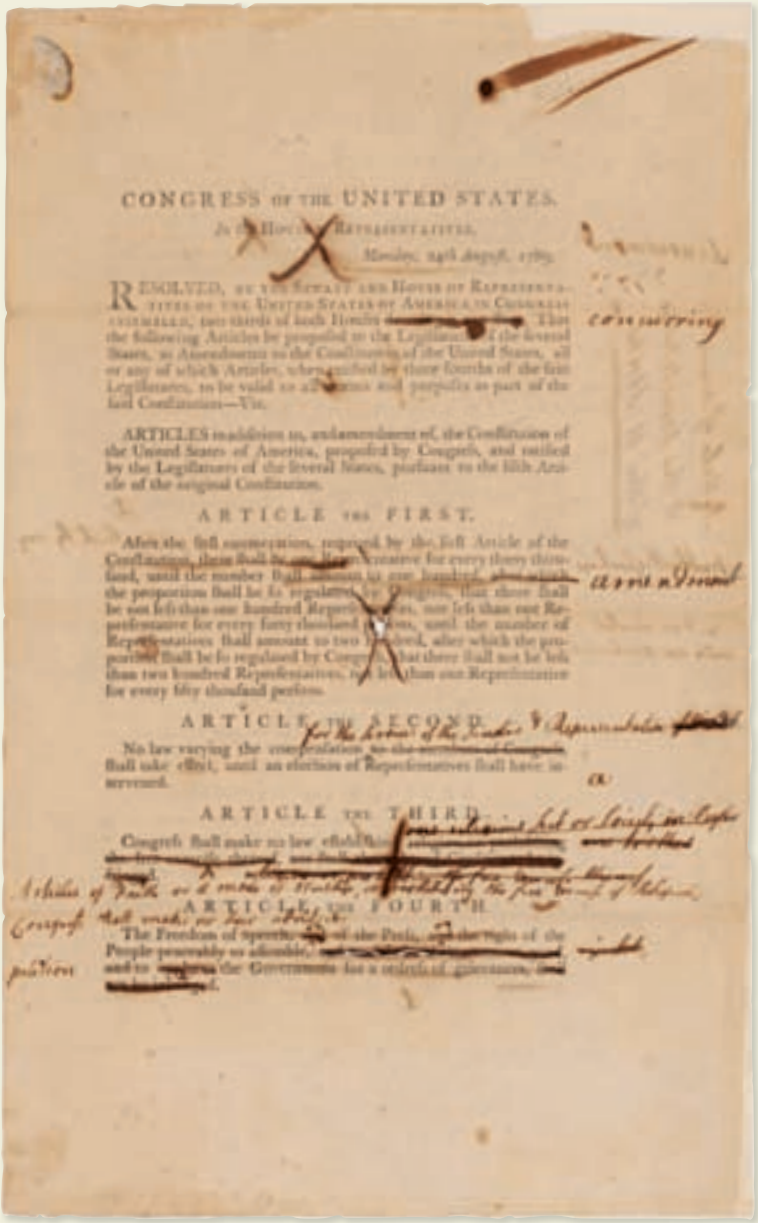 CONGRESS OF THE UNITED STATES.
In the House of Representatives,
Monday, 24th August, 1789,
RESOLVED, BY THE SENATE AND HOUSE OF REPRESENTA-
TIVES OF THE UNITED STATES OF AMERICA IN CONGRESS
ASSEMBLED, two thirds of both Houses That
concurring
the following Articles be proposed to the Legislatures of the several
States, as Amendments to the Constitution of the United States, all
or any of which Articles, when ratified by three fourths of the said
Legislatures, to be valid to all intents and purposes as part of the
said Constitution—Viz.
ARTICLES in addition to, and amendment of, the Constitution of
the United States of America, proposed by Congress, and ratified
by the Legislatures of the several States, pursuant to the fifth Arti-
cle of the original Constitution.
ARTICLE THE FIRST.
After the first enumeration, required by the first Article of the
Constitution, there shall be one Representative for every thirty thou-
sand, until the number shall amount to one hundred,
amendment
the proportion shall be so regulated by Congress, that there shall
be not less than one hundred Representatives, nor less than one Re-
presentative for every forty thousand persons, until the number of
Representatives shall amount to two hundred, after which the pro-
portion shall be so regulated by Congress, that there shall not be less
than two hundred Representatives, nor less than one Representative
for every fifty thousand persons.
ARTICLE THE SECOND.
for the of the & Representatives
No law varying the compensation to the members of Congress,
shall take effect, until an election of Representatives shall have in-
tervened.
a
ARTICLE THE THIRD.
one religious Sect or Society in
Congress shall make no law
Articles of faith or a mode of Worship, or prohibiting the free of Religion,
ARTICLE THE FOURTH.
Congress shall make no law
The Freedom of Speech, of the Press, the right of the
People peaceably to assemble,
petition
and to the Government for a redress of grievances,